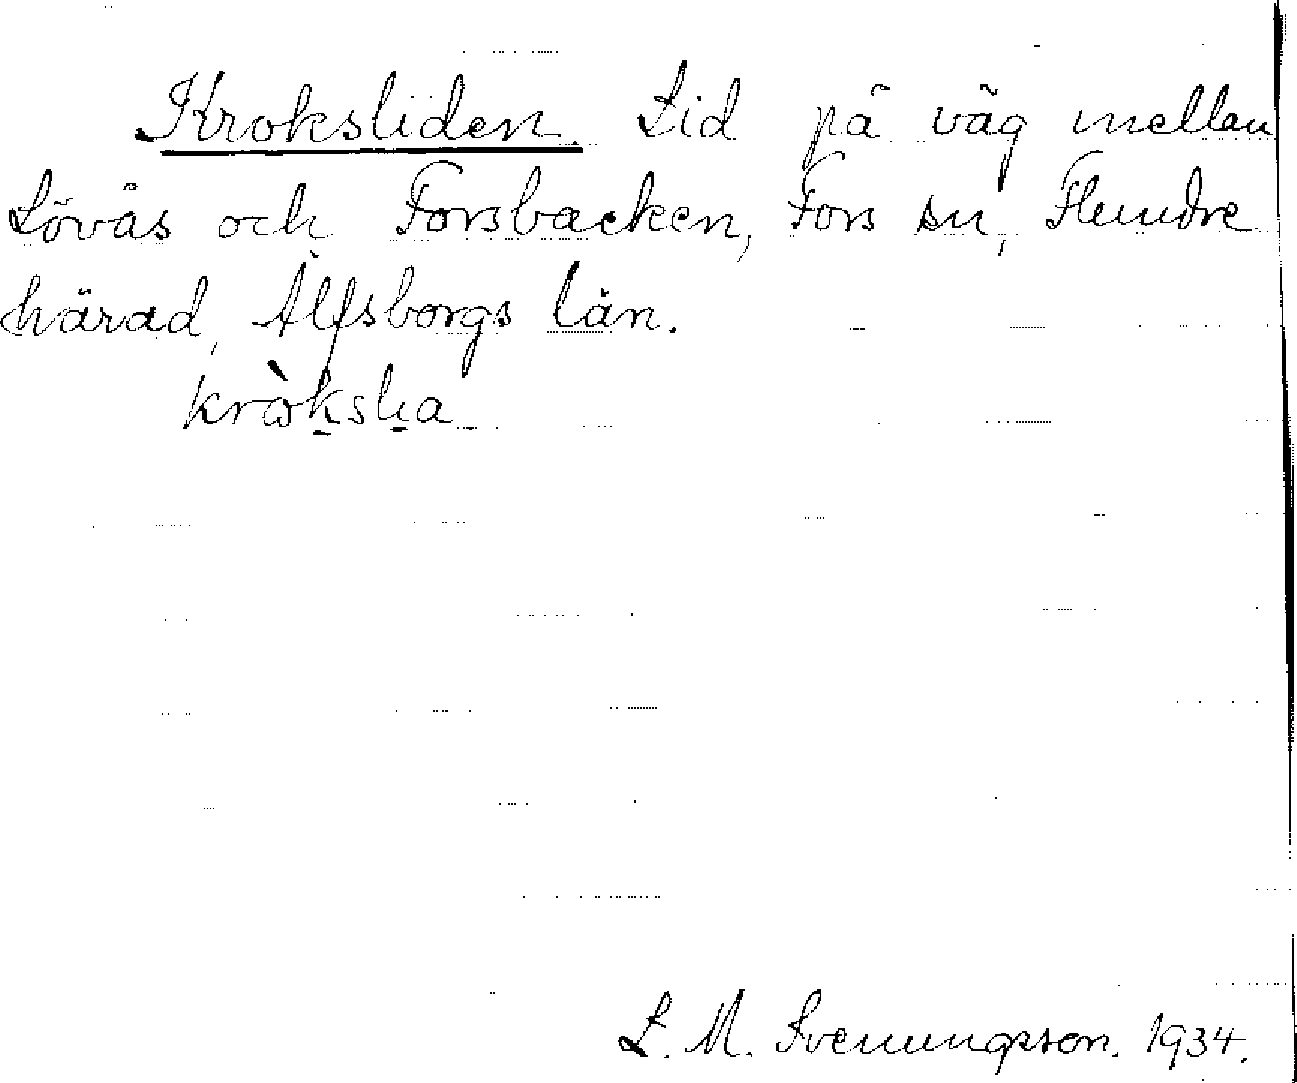 Kroksliden. Lid på väg mellan
Lövås och Forsbacken, Fors sn, Flundre
härad, Älfsborgs län.
kròkslia
L. M. Svenungsson. 1934.